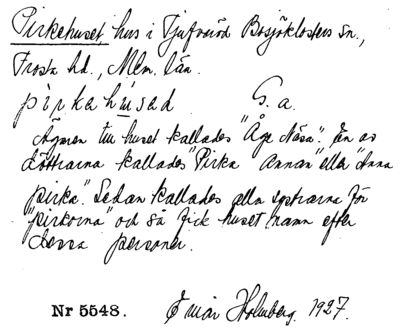 Pirkehuset, hus i Tjufveröd Bosjöklosters sn.,
Frosta hd., Mlm. län.
pirkahusad G. a.
Ägaren till huset kallades "Åge Näsa". En av
döttrarna kallades "Pirka Annan" eller "Anna
pirka". Sedan kallades alla systrarna för
"pirkorna" och så fick huset namn efter
dessa personer.
Nr 5548. Einar Holmberg. 1927.